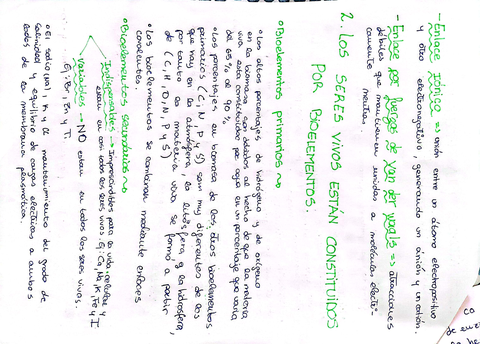 - Enlace Iónico => unión entre un átomo electropositivo
y otro electronegativo, generando un anión y un catión.
- Enlace por fuerzas de Van der Waals => atracciones
débiles que mantienen unidas a moléculas eléctri-
camente neutras.
2. LOS SERES VIVOS ESTÁN CONSTITUIDOS
POR BIOELEMENTOS.
• Bioelementos primarios ~>
• Los altos porcentajes de hidrógeno y de oxígeno
en la biomasa son debidos al hecho de que la materia
viva está constituida por agua en un porcentaje que varía
del 65% al 90%.
• Los porcentajes en biomasa de los otros bioelementos
primarios (C, N, P y S) son muy diferentes de los
que hay en la atmósfera, la litosfera y la hidrosfera,
por tanto la materia viva se formó a partir
de (C, H, O, N, P y S)
• Los bioelementos se combinan mediante enlaces
covalentes.
• Bioelementos secundarios ~>
Indispensables -> Imprescindibles para la vida celular y
están en casi todos los seres vivos.
Variables -> NO están en todos los seres vivos.
Br, y Ti.
• El sodio (Na), K y Cl mantenimiento del grado de
salinidad y equilibrio de cargas eléctricas a ambos
lados de la membrana plasmática.